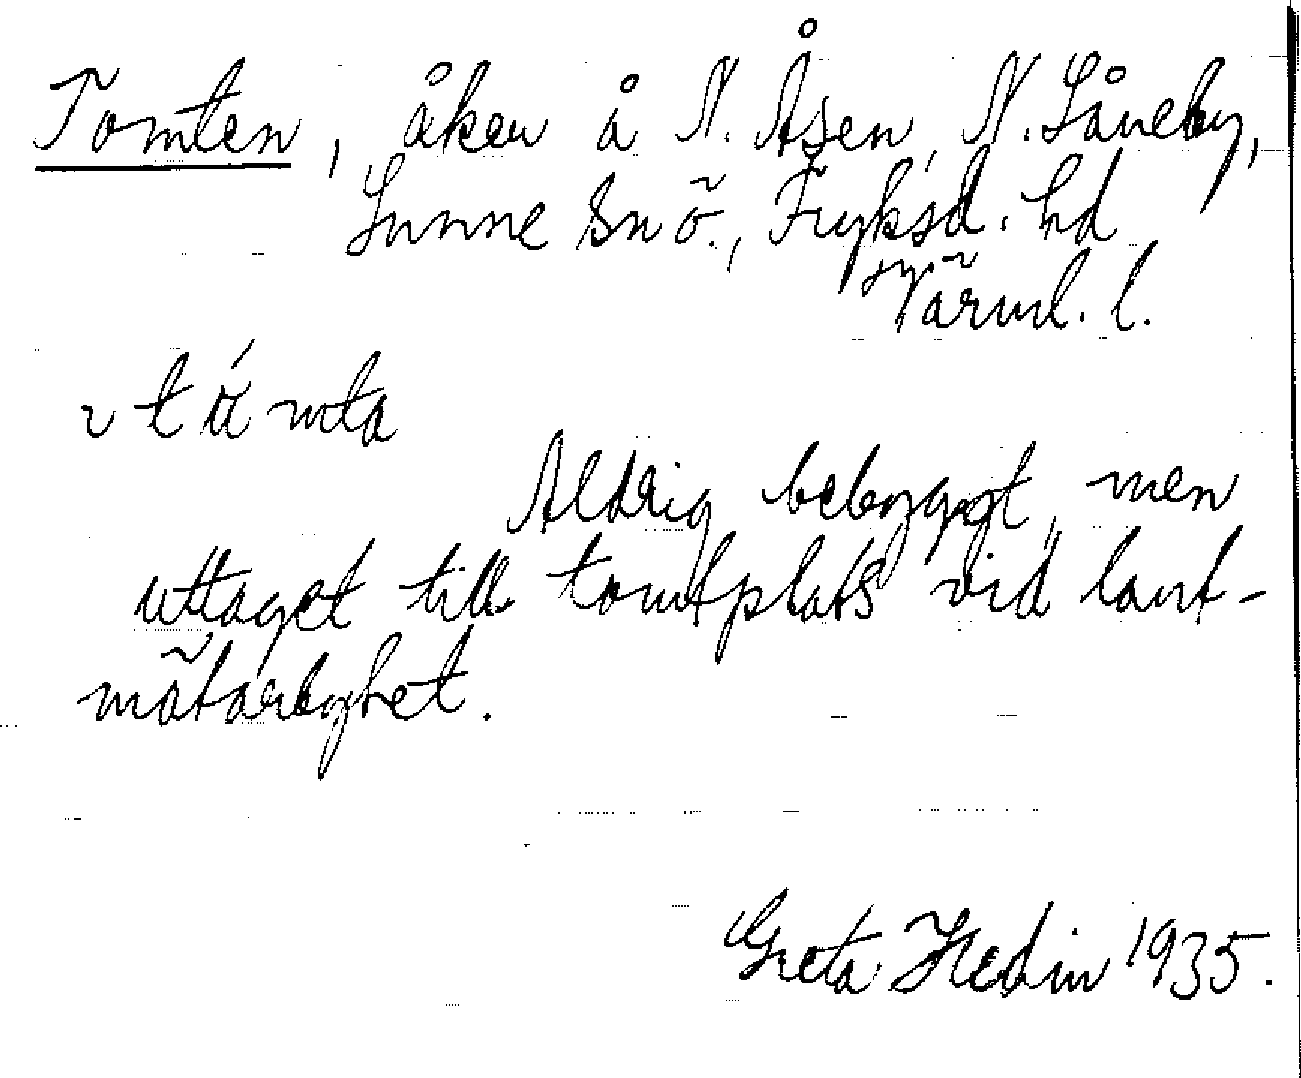 Tomten, åker å N. Åsen, N. Låneby,
Sunne sn ö., Fryksd. hd
Värml. l.
Aldrig bebyggt, men
uttaget till tomtplats vid lant-
mätarbyhet.
Greta Hedin 1935.